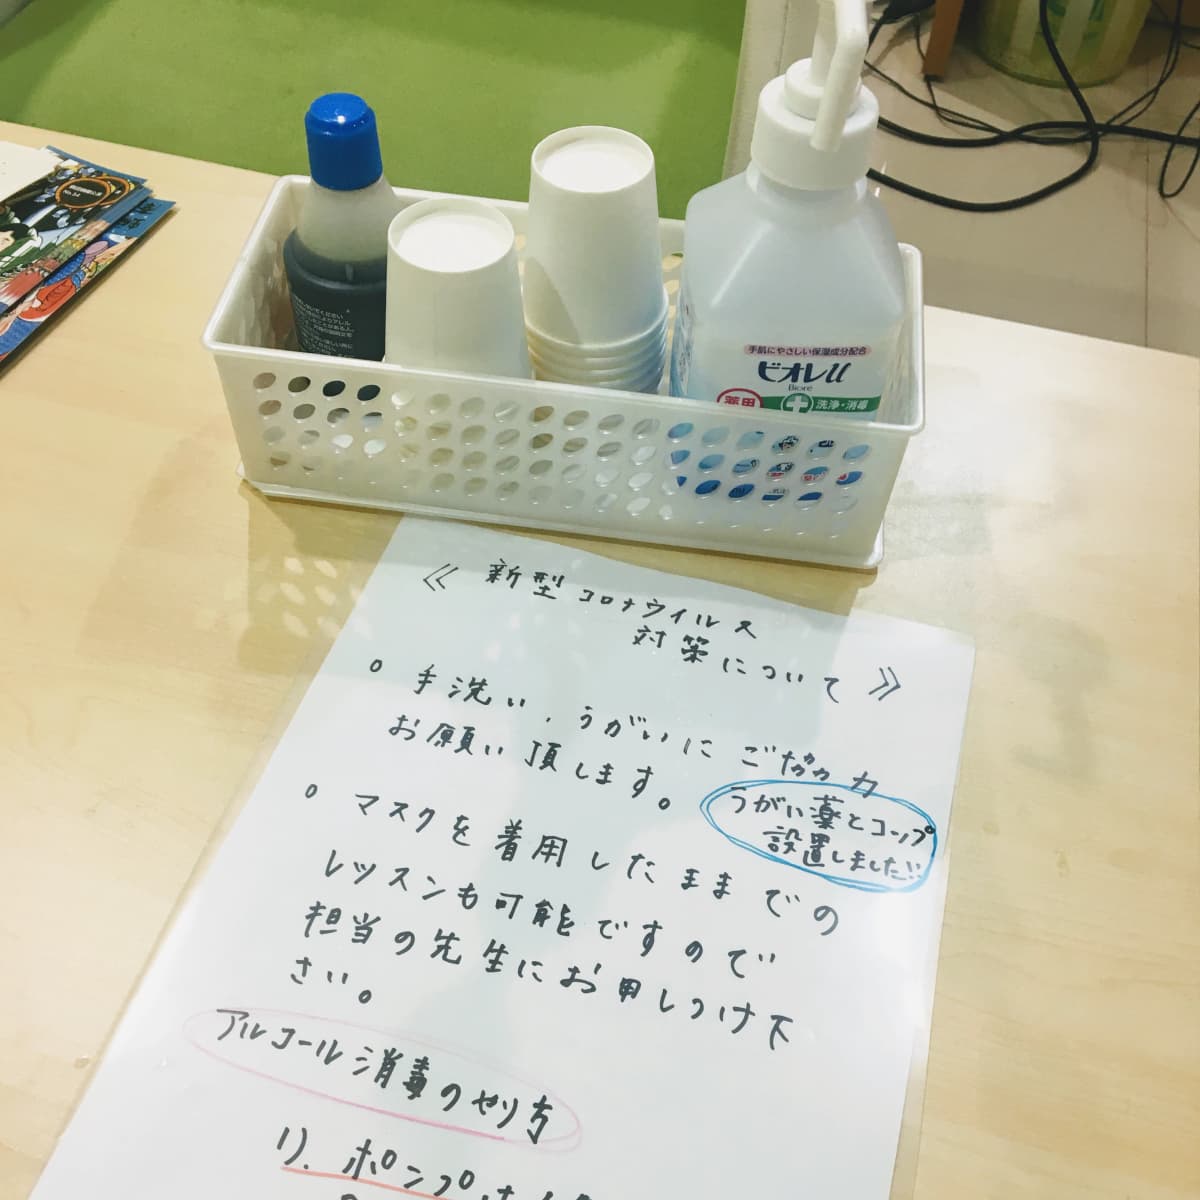 手肌にやさしい保湿成分配合
ビオレu
Biore
薬用
洗浄・消毒
《新型コロナウイルス
対策について》
○ 手洗い、うがいにご協力
お願い頂します。
うがい薬とコップ
設置しました!!
○ マスクを着用したままでの
レッスンも可能ですので
担当の先生にお申しつけ下
さい。
アルコール消毒のやり方
1). ポンプ